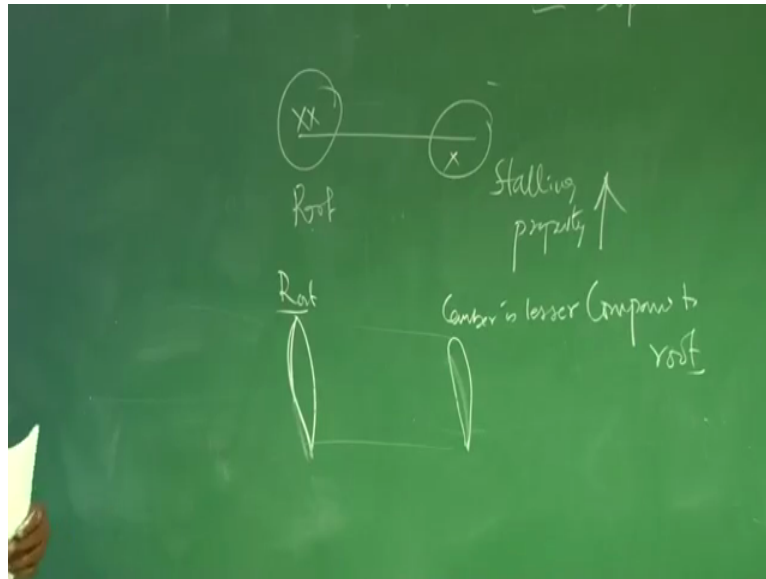 XX
X
Root
Stalling
property
Root
Camber is lesser Compare to
root